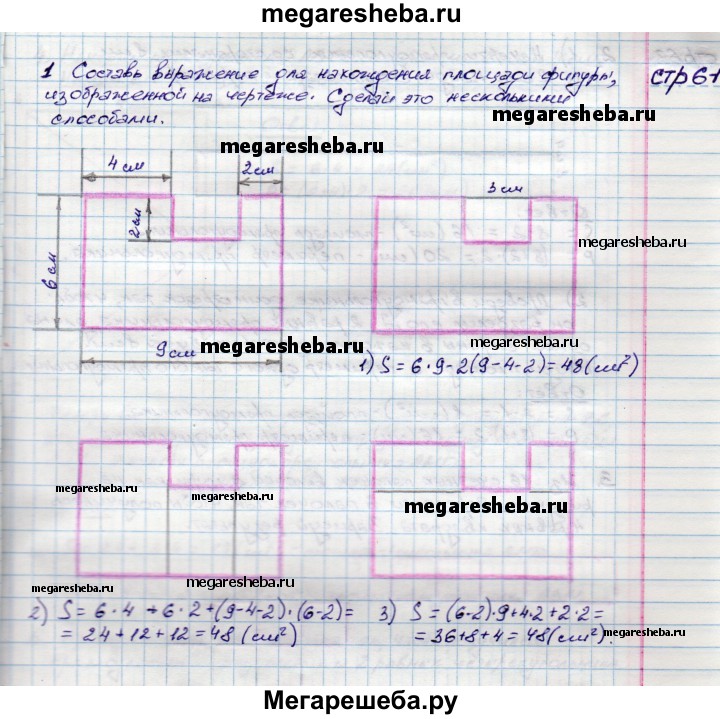 megaresheba.ru
1 Составь выражение для нахождения площади фигуры, стр 61
изображенной на чертеже. Сделай это несколькими
способами.
megaresheba.ru
4 см
2 см
3 см
2 см
megaresheba.ru
6 см
megaresheba.ru
9 см
megaresheba.ru
1) S = 6·9-2(9-4-2) = 48 (см²)
megaresheba.ru
megaresheba.ru
megaresheba.ru
megaresheba.ru
2) S = 6·4 + 6·2 + (9-4-2)·(6-2) =
= 24 + 12 + 12 = 48 (см²)
3) S = (6-2)·9 + 4·2 + 2·2 =
= 36 + 8 + 4 = 48 (см²).
megaresheba.ru
Мегарешеба.ру